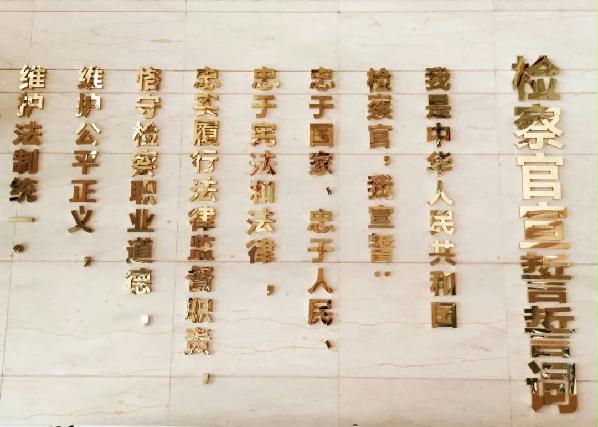 检察官宣誓誓词
我是中华人民共和国
检察官，我宣誓：
忠于国家、忠于人民、
忠于宪法和法律，
忠实履行法律监督职责，
恪守检察职业道德，
维护公平正义，
维护法制统一。